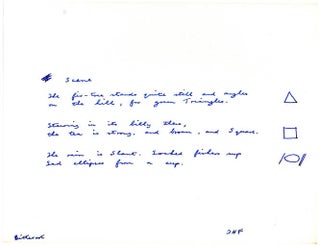 Scene
The fir-tree stands quite still and angles
on the hill, for green Triangles.
Stewing in its billy there,
the tea is strong, and brown, and Square.
The rain is Slant. Soaked fishers sup
Sad ellipses from a cup.
IHF